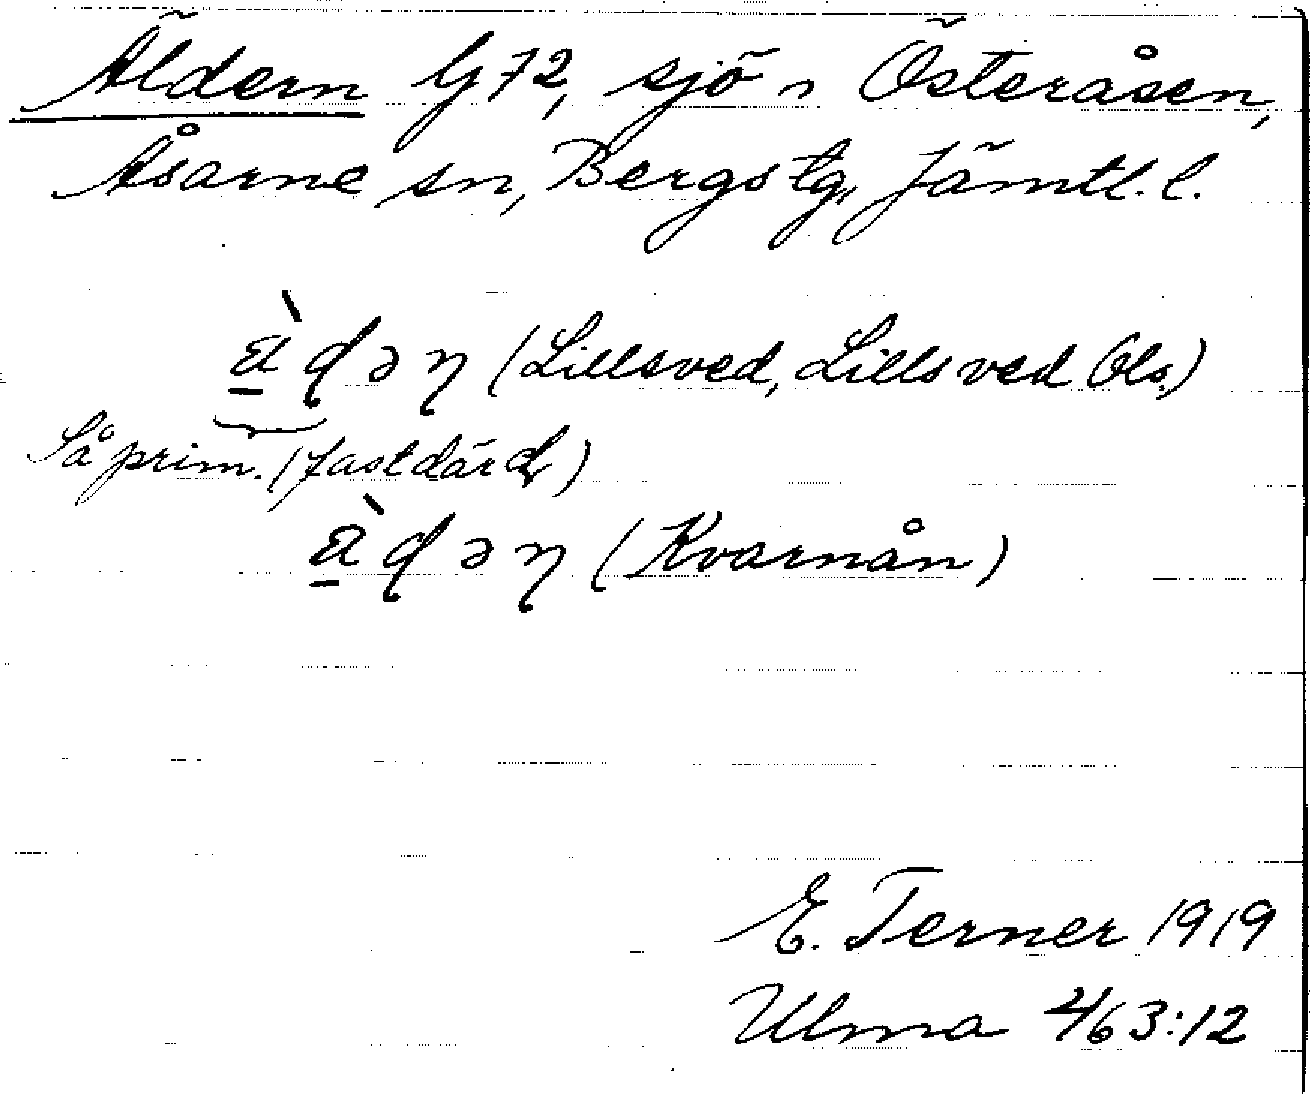 Äldern G72, sjö n Österåsen,
Åsarne sn, Bergs tg, Jämtl. l.
(Lillsved, Lillsved Ols.)
Så prim. (fast där d)
(Kvarnån)
E. Terner 1919
Ulma 463:12